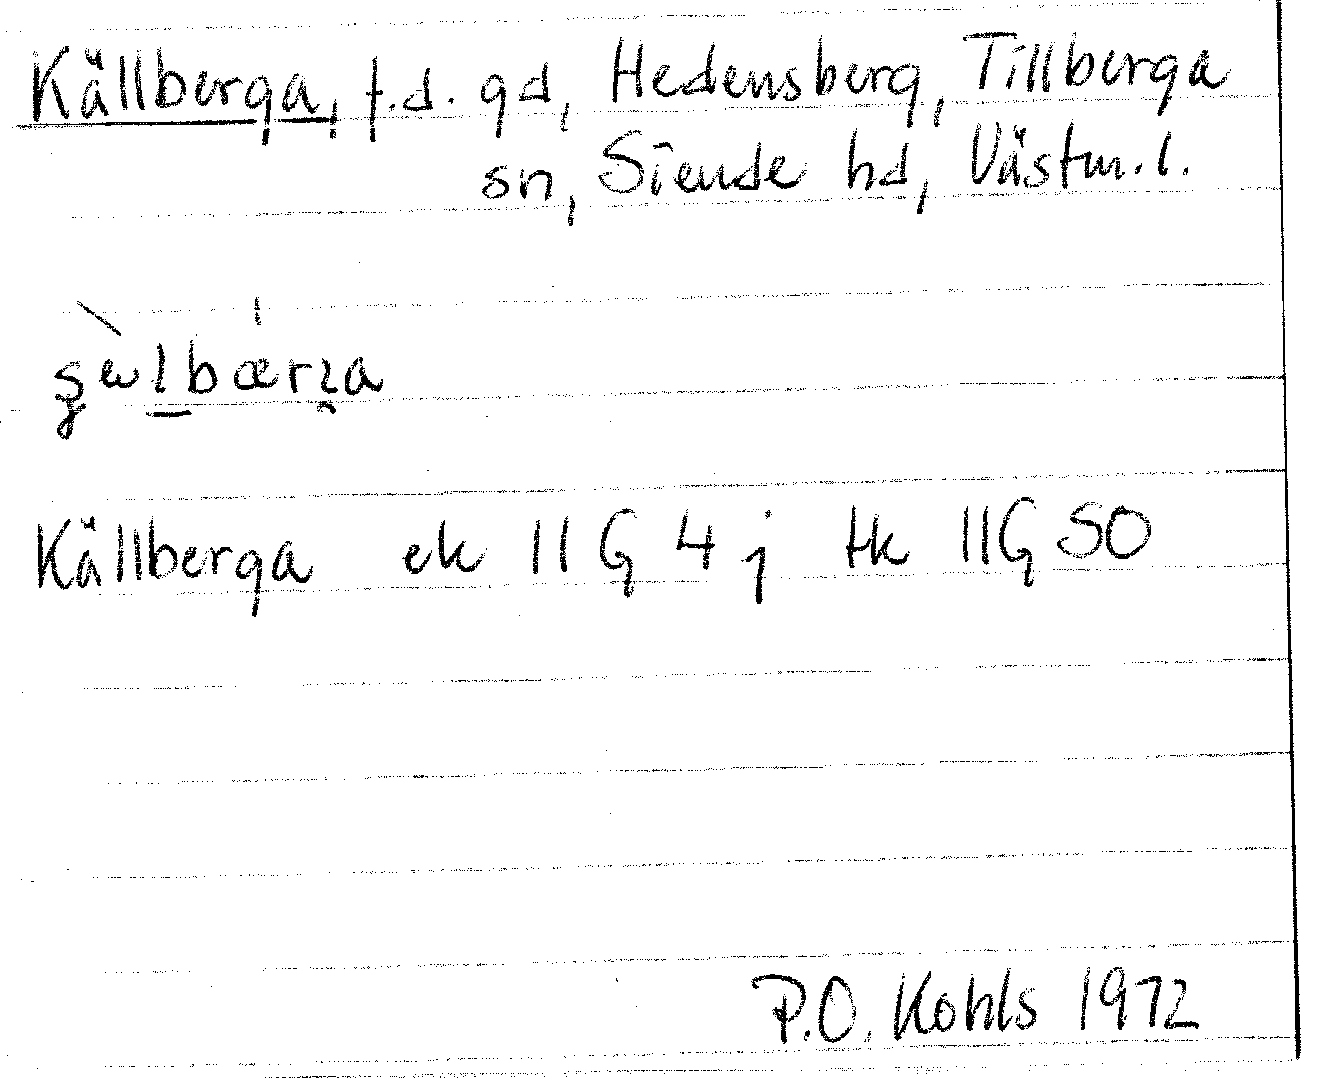 Källberga, f.d. gd, Hedensberg, Tillberga
sn, Siende hd, Västm. l.
Källberga ek 11 G 4 j tk 11G SO
P.O. Kohls 1972